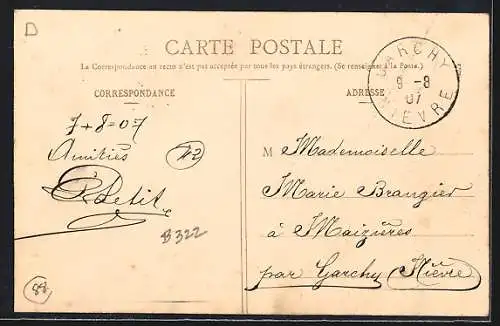 D
CARTE POSTALE
La Correspondance au recto n'est pas acceptée par tous les pays étrangers. (Se renseigner à la Poste.)
GARCHY
9 -8
07
NIÈVRE
CORRESPONDANCE
ADRESSE
7+8=07
Amitiés
Petit
42
B322
88
M Mademoiselle
Marie Brangier
à Maizières
par Garchy (Nièvre)